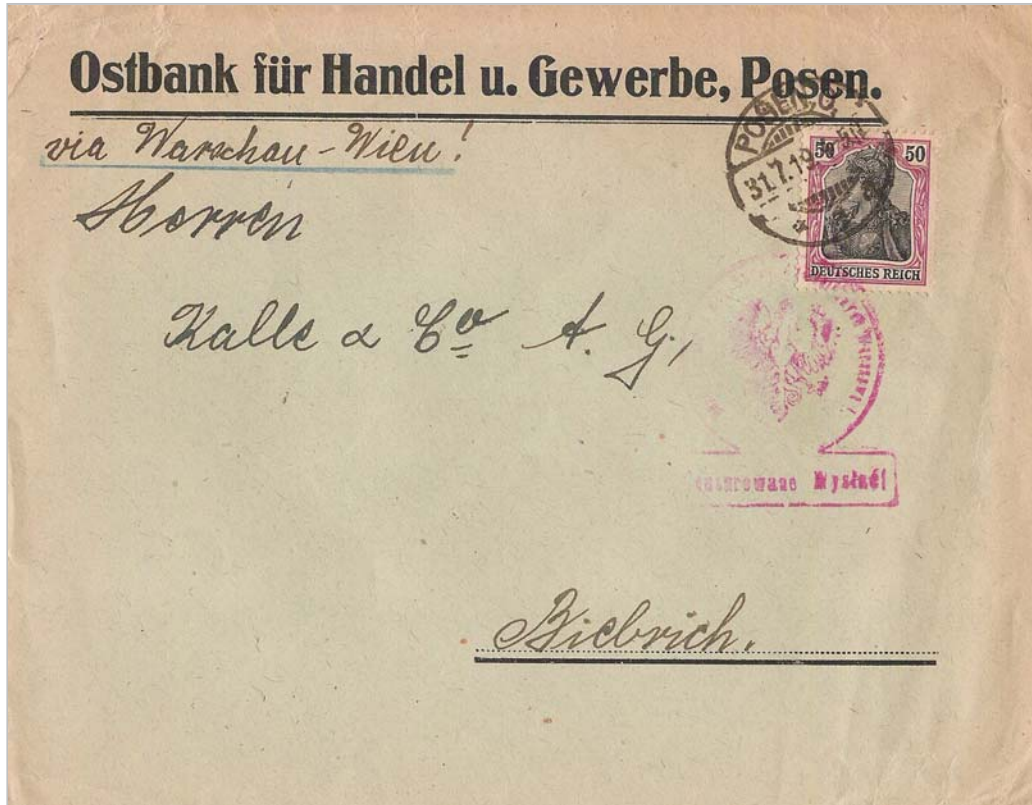 Ostbank für Handel u. Gewerbe, Posen.
via Warschau-Wien!
POSEN
31.7.19
50 50
DEUTSCHES REICH
Herren
Kalle & Co A. G.,
Wysłać!
Biebrich.